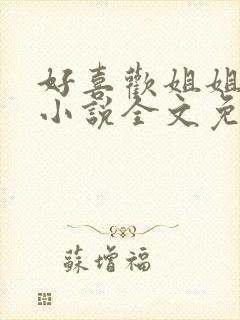 好喜歡姐姐
小說全文免
蘇增福